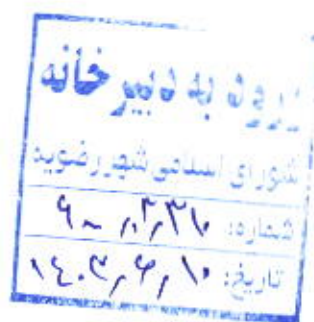 ورود به دبیرخانه
شورای اسلامی شهر رضویه
شماره:
تاریخ: ۱۴۰۳٫۶٫۱۰